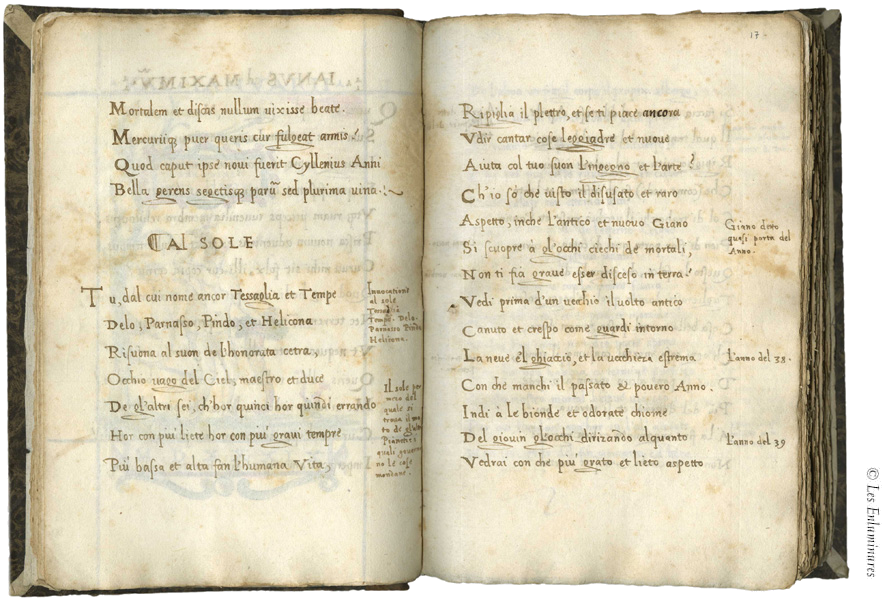 Mortalem et discas nullum uixisse beate.
Mercuriiq; puer queris cur fulgeat armis?
Quod caput ipse noui fuerit Cyllenius Anni
Bella gerens segetisq; parũ sed plurima uina.
Al SOLE
Tu, dal cui nome ancor Tessaglia et Tempe
Delo, Parnasso, Pindo, et Helicona
Risuona al suon de l'honorata cetra,
Occhio uago del Ciel, maestro et duce
De gl'altri sei, ch'hor quinci hor quindi errando
Hor con piu' liete hor con piu' graui tempre
Piu' bassa et alta fan l'humana Vita,
Inuocatione
al sole
Tempe. Delo.
Parnasso Pindo
Helicona.
Il sole per
mezo del
quale si
to de gl'altri
Pianeti i
quali gouerna
no le cose
mondane.
17
Ripiglia il plettro, et se ti piace ancora
Vdir cantar cose leggiadre et nuoue
Aiuta col tuo suon l'ingegno et l'arte?
Ch'io so che uisto il disusato et raro
Aspetto, inche l'antico et nuouo Giano
Si scuopre à gl'occhi ciechi de mortali,
Non ti fia graue esser disceso in terra?
Vedi prima d'un uecchio il uolto antico
Canuto et crespo come guardi intorno
La neue el ghiaccio, et la uecchiezza estrema
Con che manchi il passato & pouero Anno.
Indi à le bionde et odorate chiome
Del giouin gl'occhi dirizando alquanto
Vedrai con che piu' grato et lieto aspetto
Giano detto
quasi porta del
Anno.
l'anno del 38.
l'anno del 39
© Les Enluminures